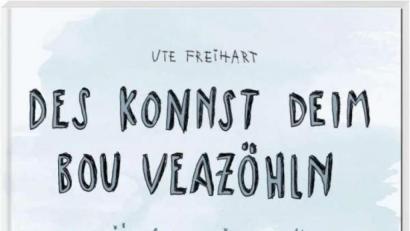 UTE FREIHART
DES KONNST DEIM
BOU VEAZÖHLN